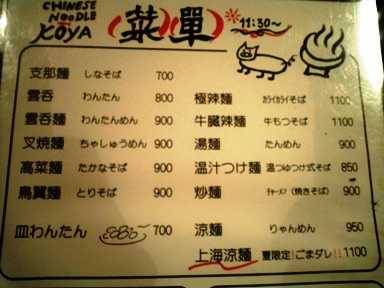 CHINESE
NOODLE
KOYA
菜單
11:30～
支那麺 しなそば 700
雲呑 わんたん 800
雲呑麺 わんたんめん 900
叉焼麺 ちゃしゅうめん 900
高菜麺 たかなそば 900
鳥翼麺 とりそば 900
皿わんたん 700
極辣麺 カライカライそば 1100
牛臓辣麺 牛もつそば 1100
湯麺 たんめん 900
温汁つけ麺 温つゆつけ式そば 850
炒麺 チャーメン(焼きそば) 900
涼麺 りゃんめん 950
上海涼麺 夏限定!ごまダレ!! 1100